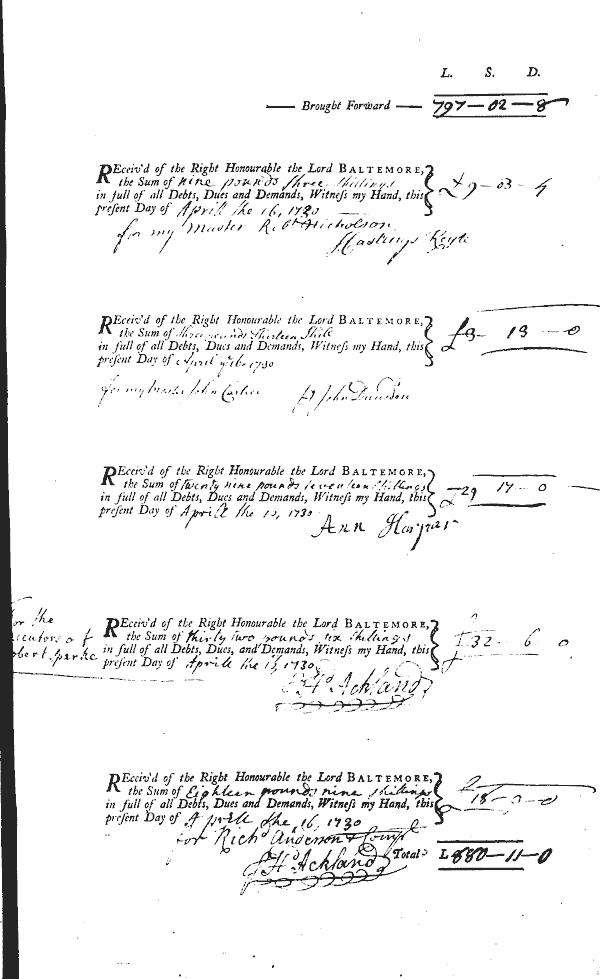 L. S. D.
Brought Forward — 797-02-8
REceiv'd of the Right Honourable the Lord BALTEMORE,
the Sum of nine pounds three shillings £9-03-4
in full of all Debts, Dues and Demands, Witness my Hand, this
present Day of Aprill the 16, 1730
for my Master Rich Nicholson
Hastings Keyte
REceiv'd of the Right Honourable the Lord BALTEMORE,
the Sum of three pounds thirteen Shill £3-13-0
in full of all Debts, Dues and Demands, Witness my Hand, this
present Day of Aprill 1730
for my Master John
John
REceiv'd of the Right Honourable the Lord BALTEMORE,
the Sum of twenty nine pounds seventeen shillings £29 17-0
in full of all Debts, Dues and Demands, Witness my Hand, this
present Day of Aprill the 1730
Ann Harper
For the
Executors of
Robert
REceiv'd of the Right Honourable the Lord BALTEMORE,
the Sum of thirty two pounds six shillings £32-6 0
in full of all Debts, Dues, and Demands, Witness my Hand, this
present Day of Aprill the 1730
Ho Ackland
REceiv'd of the Right Honourable the Lord BALTEMORE,
the Sum of Eighteen pounds nine shillings
in full of all Debts, Dues and Demands, Witness my Hand, this
present Day of Aprill the, 16, 1730
for Richd Anderson & Comp
Ho Ackland Total L 880-11-0